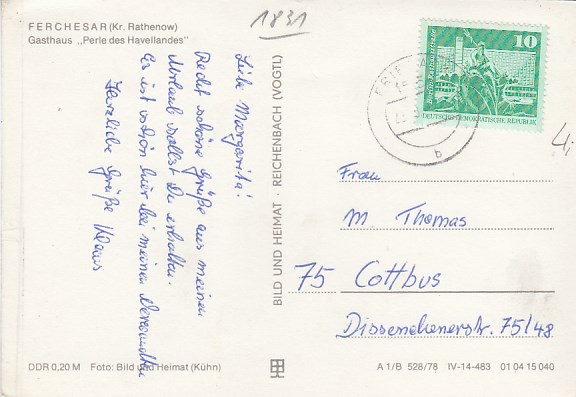 FERCHESAR (Kr. Rathenow)
Gasthaus „Perle des Havellandes"
1831
Liebe Margarita!
Recht schöne Grüße aus meinem
Urlaub sollst Du erhalten.
Es ist schön hier bei meinen Verwandten
Herzliche Grüße Klaus
BILD UND HEIMAT · REICHENBACH (VOGTL)
10
Berlin, Rathausstraße
DEUTSCHE DEMOKRATISCHE REPUBLIK
b
Frau
M. Thomas
75 Cottbus
Dissenchenerstr. 75/48
DDR 0,20 M Foto: Bild und Heimat (Kühn)
A 1/B 528/78 IV-14-483 01 04 15 040